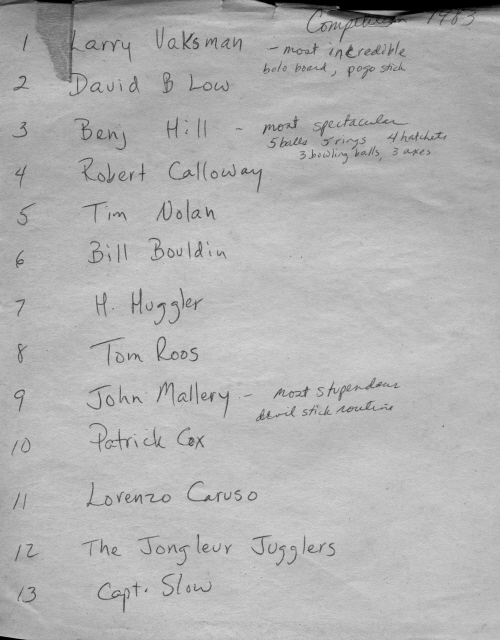 Competition 1983
1 Larry Vaksman - most incredible
bolo board, pogo stick
2 David B Low
3 Benj Hill - most spectacular
5 balls 5 rings 4 hatchets
3 bowling balls, 3 axes
4 Robert Calloway
5 Tim Nolan
6 Bill Bouldin
7 H. Huggler
8 Tom Roos
9 John Mallery - most stupendous
devil stick routine
10 Patrick Cox
11 Lorenzo Caruso
12 The Jongleur Jugglers
13 Capt. Slow